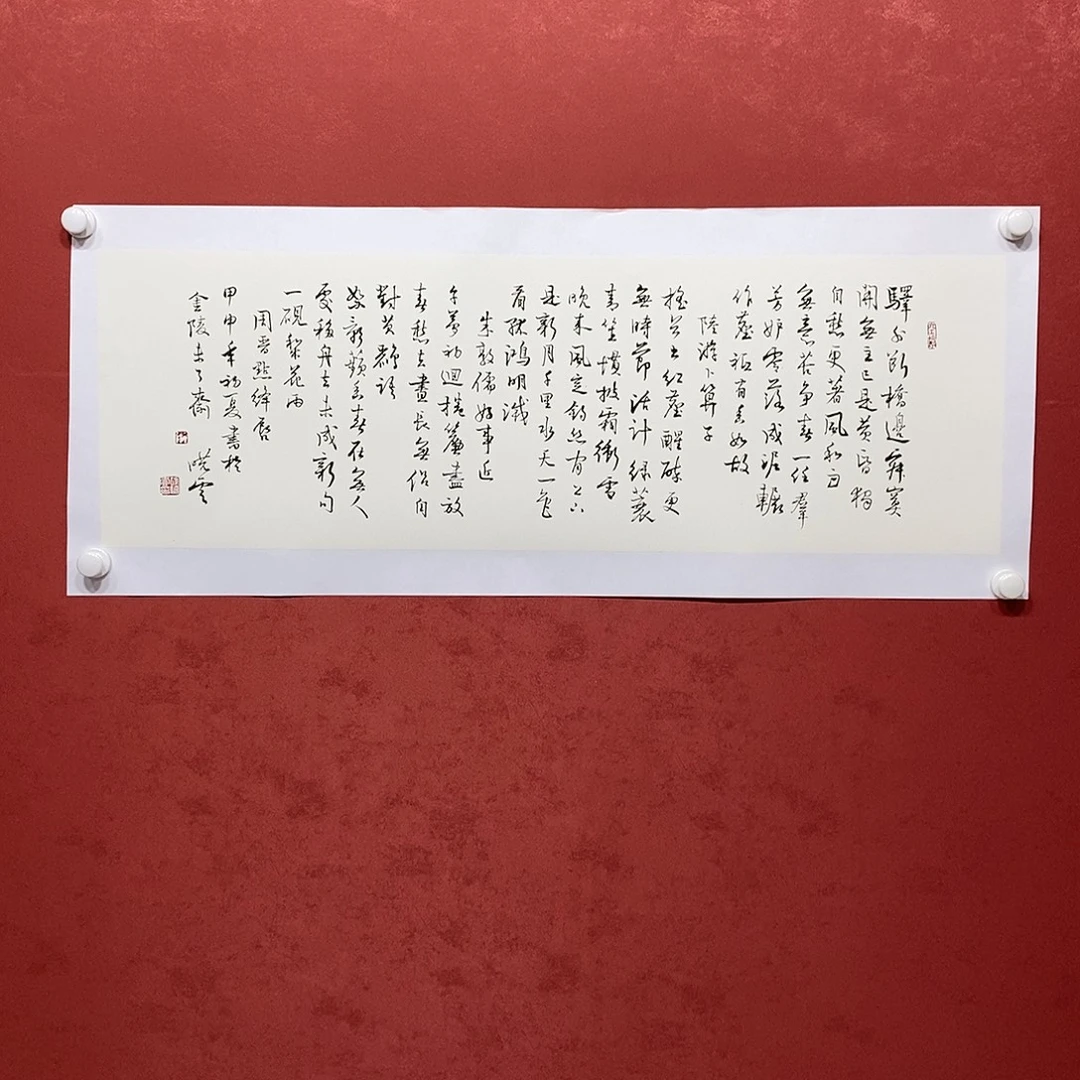 驛外斷橋邊寂寞
開無主已是黃昏獨
自愁更著風和雨
無意苦爭春一任羣
芳妒零落成泥輾
作塵祇有香如故
陸游卜算子
搖首出紅塵醒醉更
無時節活計綠蓑
青笠慣披霜衝雪
晚來風定釣絲上下
是新月千里水天一色
看孤鴻明滅
朱敦儒好事近
午夢初迴捲簾盡放
春愁去晝長無侶自
對黃鸝語
絮影蘋香春在無人
處移舟去未成新句
一硯梨花雨
周晋點絳唇
甲申年初夏書於
金陵齋 曉雲